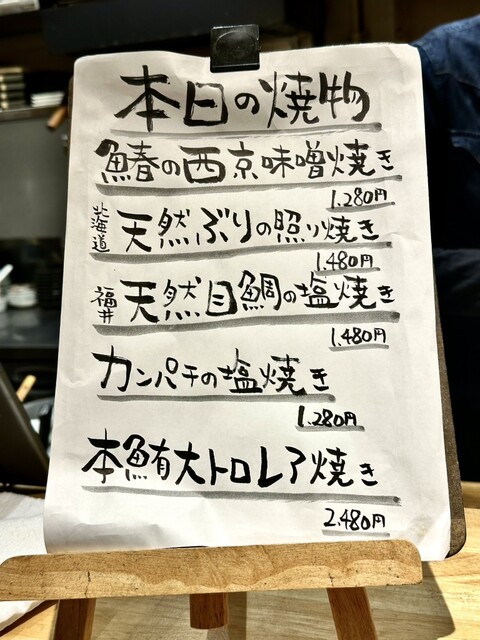 本日の焼物
鰆の西京味噌焼き
1.280円
北海道 天然ぶりの照り焼き
1.480円
福井 天然目鯛の塩焼き
1.480円
カンパチの塩焼き
1.280円
本鮪大トロレア焼き
2.480円